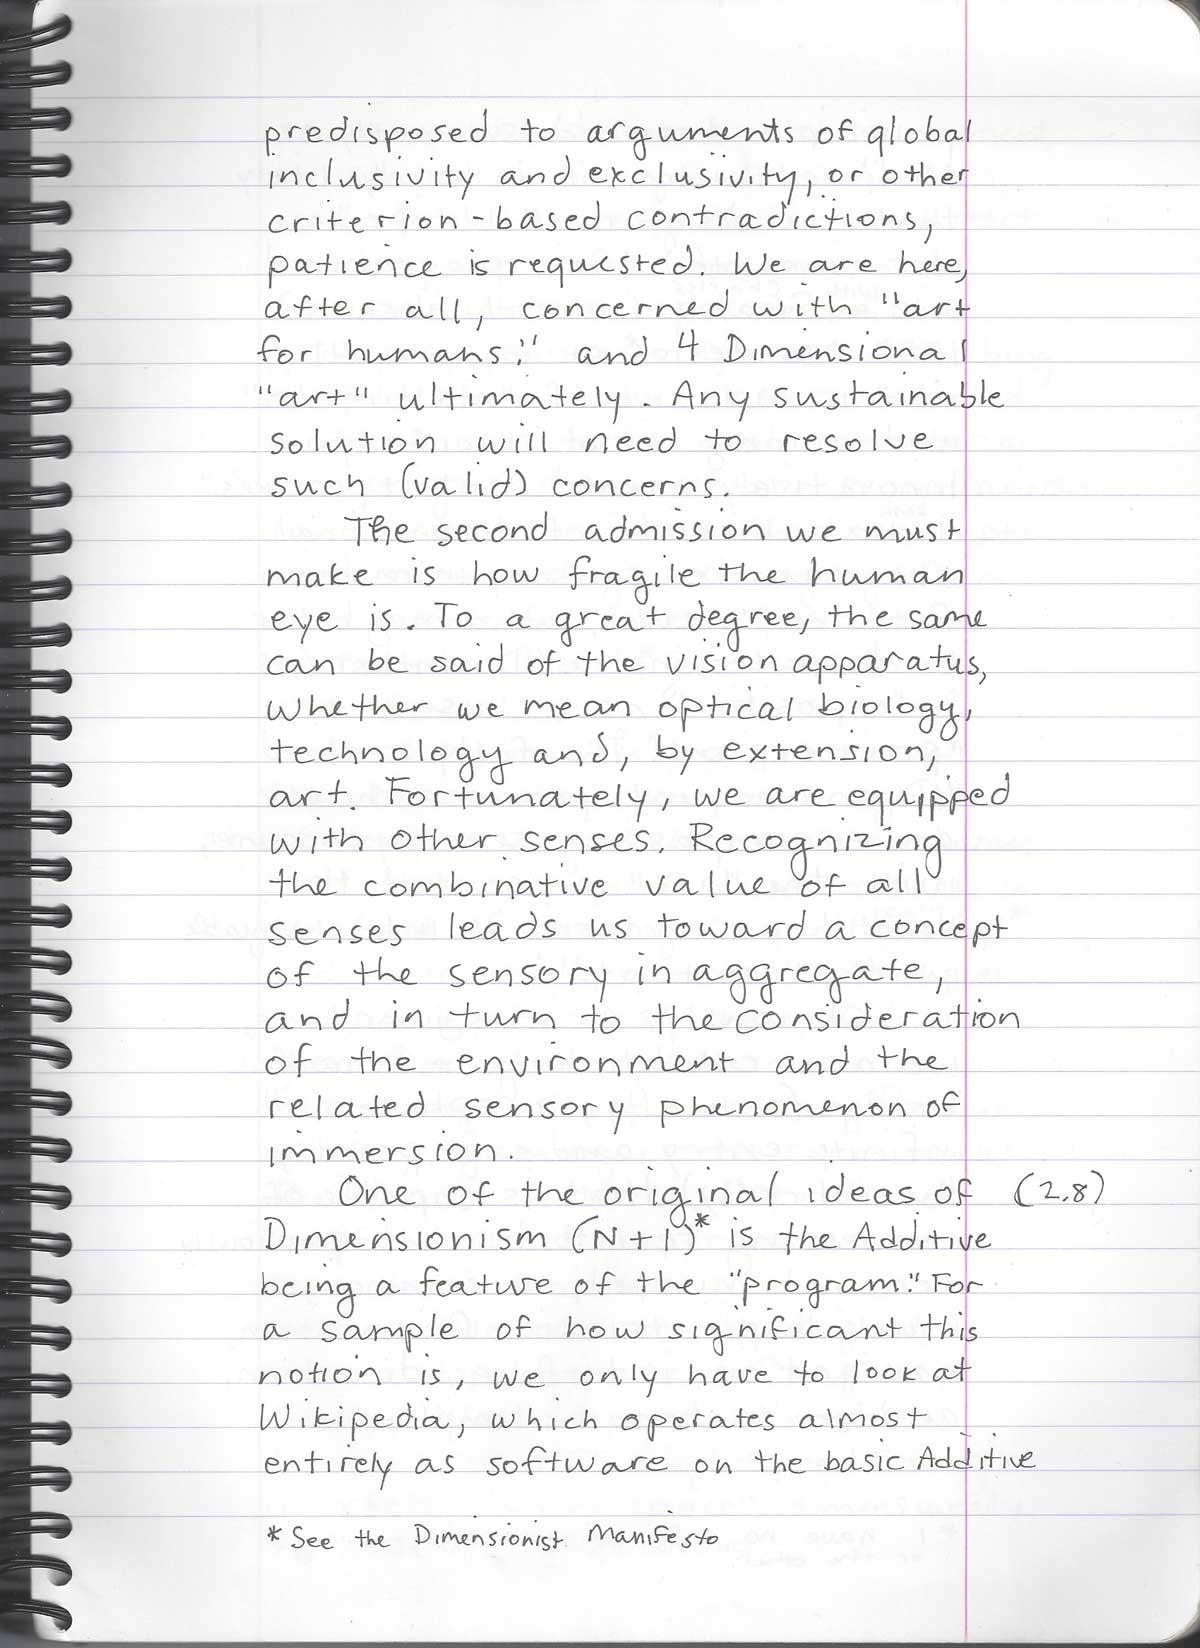 predisposed to arguments of global
inclusivity and exclusivity, or other
criterion-based contradictions,
patience is requested. We are here,
after all, concerned with "art
for humans." and 4 Dimensional
"art" ultimately. Any sustainable
solution will need to resolve
such (valid) concerns.
The second admission we must
make is how fragile the human
eye is. To a great degree, the same
can be said of the vision apparatus,
whether we mean optical biology,
technology and, by extension,
art. Fortunately, we are equipped
with other senses. Recognizing
the combinative value of all
senses leads us toward a concept
of the sensory in aggregate,
and in turn to the consideration
of the environment and the
related sensory phenomenon of
immersion.
One of the original ideas of (2.8)
Dimensionism (N+1)* is the Additive
being a feature of the "program." For
a sample of how significant this
notion is, we only have to look at
Wikipedia, which operates almost
entirely as software on the basic Additive
* See the Dimensionist Manifesto